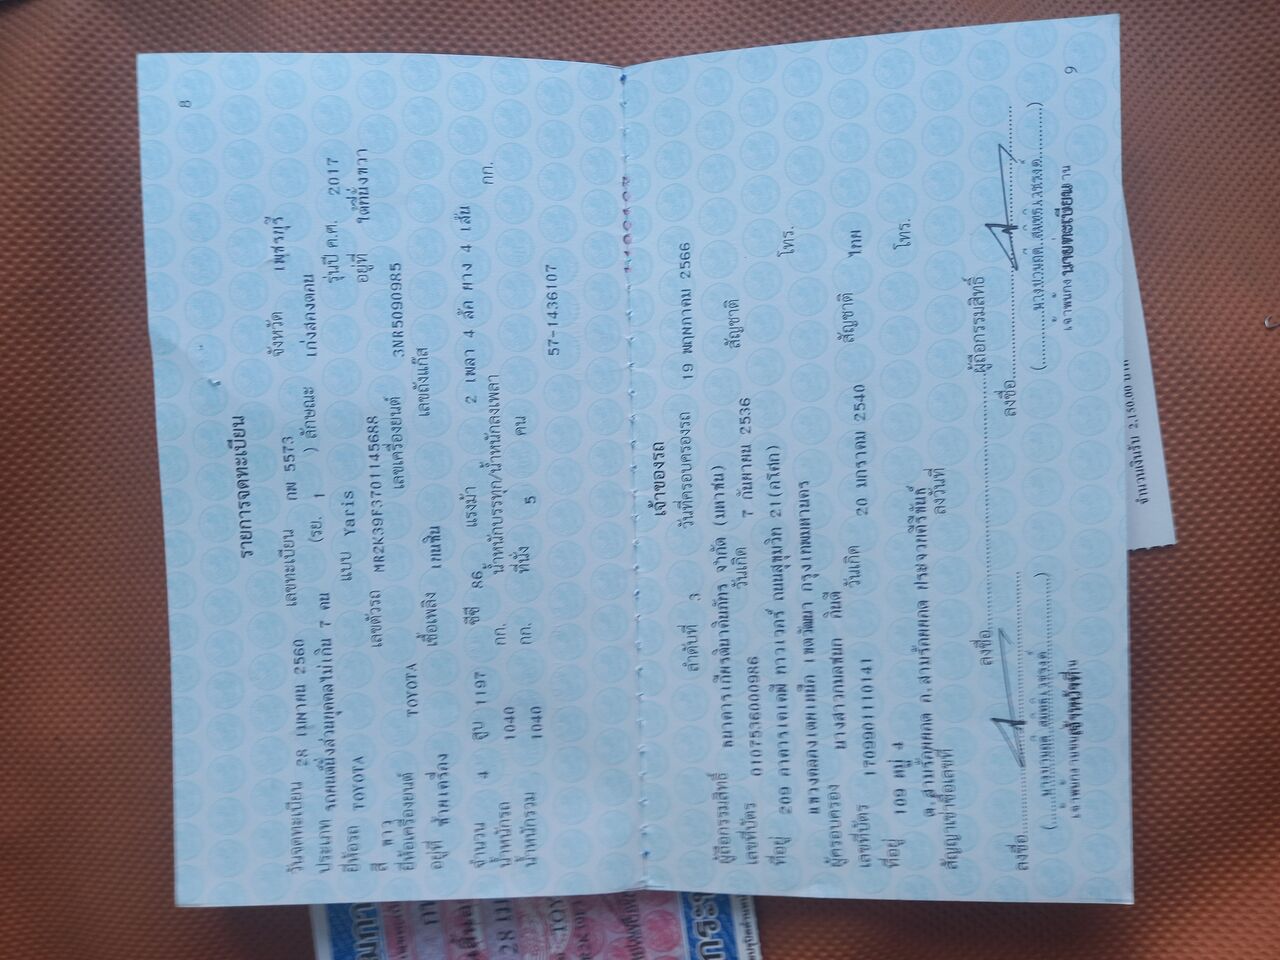 8
รายการจดทะเบียน
วันจดทะเบียน 28 เมษายน 2560 เลขทะเบียน กม 5573 จังหวัด เพชรบุรี
ประเภท รถยนต์นั่งส่วนบุคคลไม่เกิน 7 คน (รย. 1 ) ลักษณะ เก๋งสองตอน
ยี่ห้อรถ TOYOTA แบบ Yaris รุ่นปี ค.ศ. 2017
สี ขาว เลขตัวรถ MR2K39F3701145688 อยู่ที่ ใต้ที่นั่งขวา
ยี่ห้อเครื่องยนต์ TOYOTA เลขเครื่องยนต์ 3NR5090985
อยู่ที่ ท้ายเครื่อง เชื้อเพลิง เบนซิน เลขถังแก๊ส
จำนวน 4 สูบ 1197 ซีซี 86 แรงม้า 2 เพลา 4 ล้อ ยาง 4 เส้น
น้ำหนักรถ 1040 กก. น้ำหนักบรรทุก/น้ำหนักลงเพลา กก.
น้ำหนักรวม 1040 กก. ที่นั่ง 5 คน
57-1436107
เจ้าของรถ
ลำดับที่ 3 วันที่ครอบครองรถ 19 พฤษภาคม 2566
ผู้ถือกรรมสิทธิ์ ธนาคารเกียรตินาคินภัทร จำกัด (มหาชน)
เลขที่บัตร 0107536000986 วันเกิด 7 กันยายน 2536 สัญชาติ
ที่อยู่ 209 อาคารเคเคพี ทาวเวอร์ ถนนสุขุมวิท 21(อโศก) โทร.
แขวงคลองเตยเหนือ เขตวัฒนา กรุงเทพมหานคร
ผู้ครอบครอง นางสาวกมลชนก ถิ่นดี
เลขที่บัตร 1709901110141 วันเกิด 20 มกราคม 2540 สัญชาติ ไทย
ที่อยู่ 109 หมู่ 4 โทร.
ต.สามร้อยยอด อ.สามร้อยยอด ประจวบคีรีขันธ์
สัญญาเช่าซื้อเลขที่ ลงวันที่
ลงชื่อ ผู้ถือกรรมสิทธิ์
ลงชื่อ ลงชื่อ
เจ้าหน้าที่ นายทะเบียน
9
จำนวนเงินรับ 2,150.00 บาท
28 เม
TOY